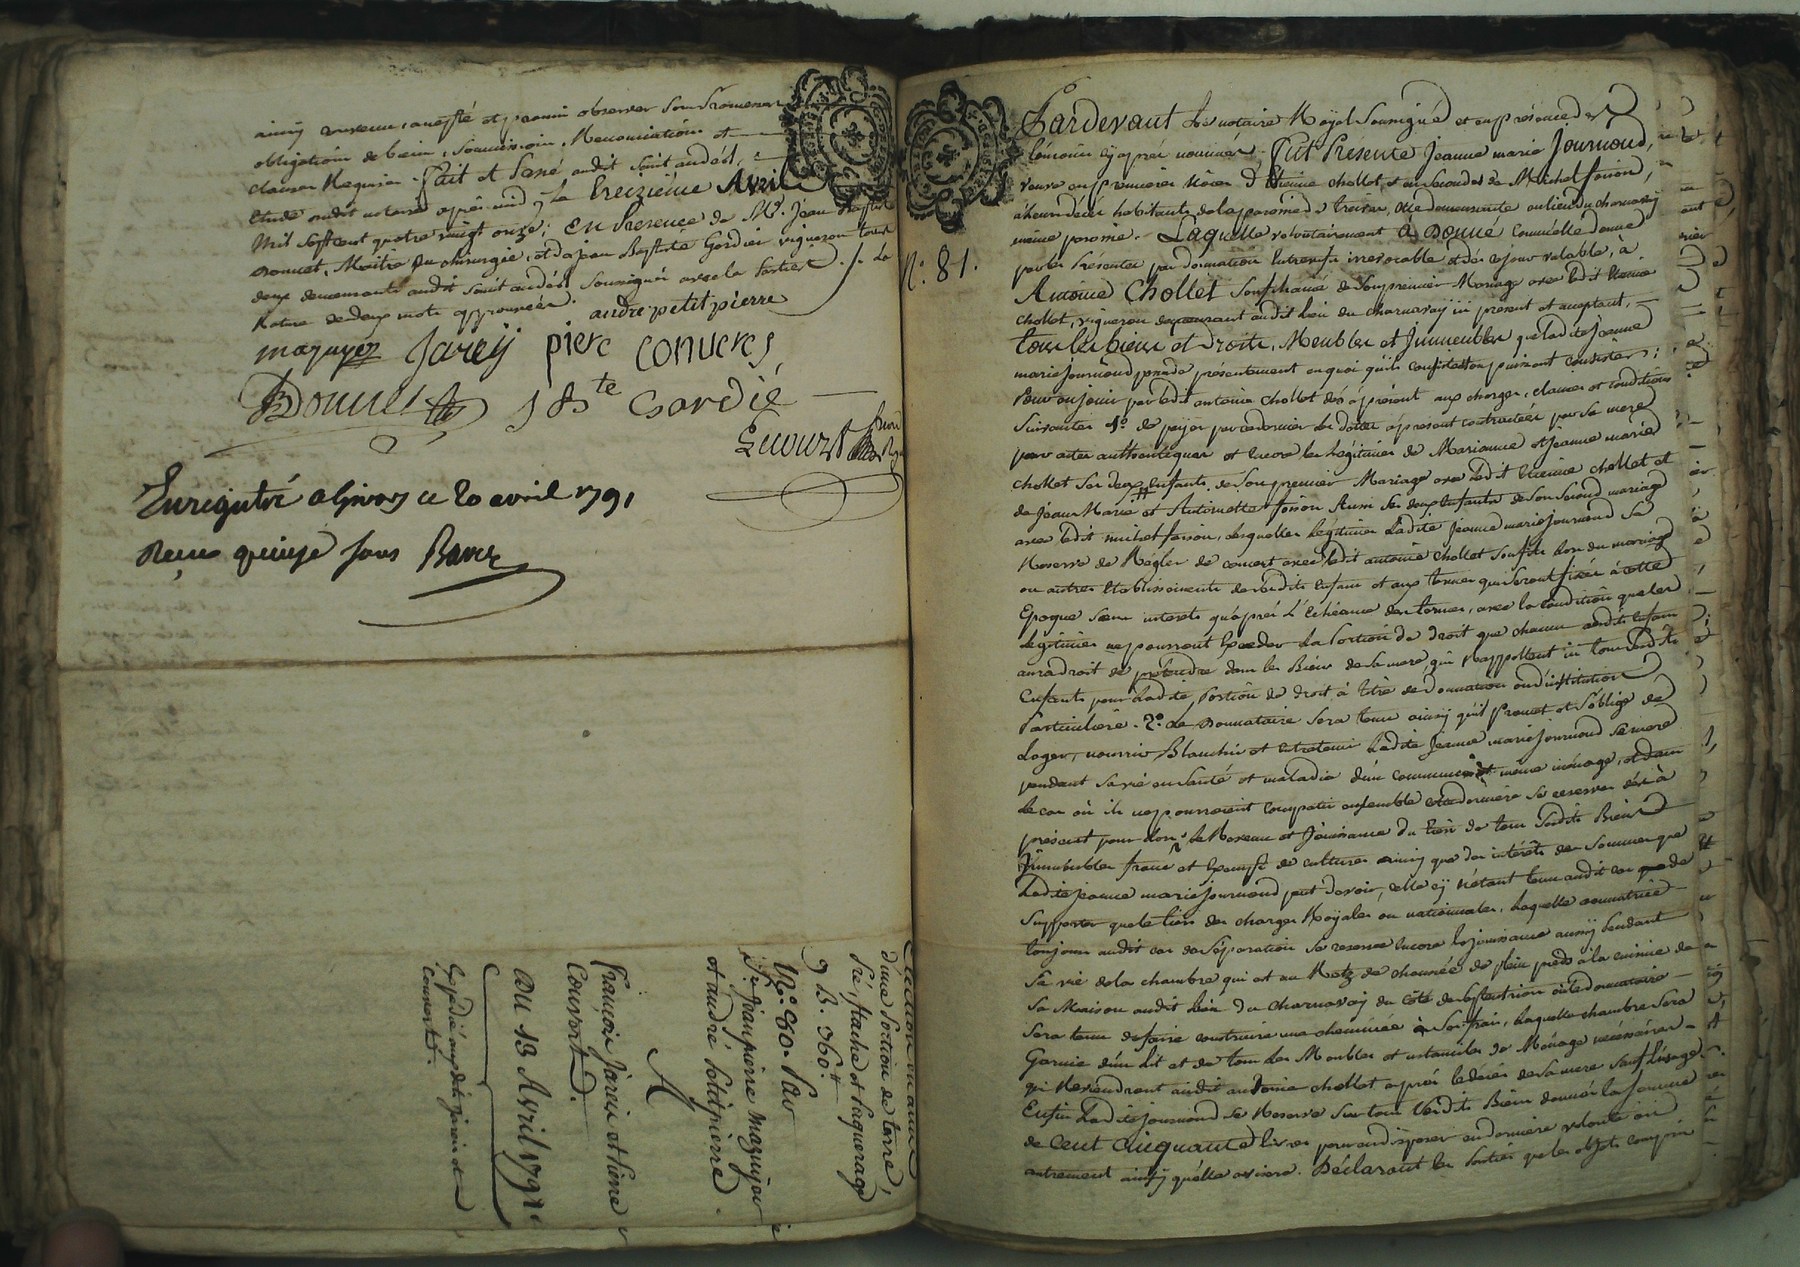 ainsy convenu, accepté et promis observer sous promesses
obligation de biens, soumissions, Renonciations et
clauses Requises. fait et Passé audit saint andéol,
Etude dudit notaire après midy Le treizième Avril
Mil Sept cent quatre vingt onze; En Présence de Sr. Jean Baptiste
Bonnet, Maitre en chirurgie, et de jean Baptiste Gardier vigneron tous
deux demeurants audit saint andéol Soussignés avec les parties. La
Rature de deux mots approuvée.
andré petitpierre
mazuyer Jarey piere Converes
Bonnet JBte Gardié
Enregistré a Givors ce 20 avril 1791
Reçu quinze sous
Election en ami
d'une Portion de terre,
Pré, et Paquerage
No. 80. Par
B. 360.
Sr. Jean pierre mazuyer
et andré Petitpierre.
A
François Jarei et Pierre
Convert.
DU 13 Avril 1791
Expédié auxdits jarei et
Convert.
No. 81.
Pardevant Le notaire Royal Soussigné et en présence des
témoins cy après nommés. Fut Présente Jeanne marie Journoud,
veuve en premieres nôces d'Etienne chollet, et en secondes de Michel foison,
à leurs décès habitants de la paroisse de treives, elle demeurante au lieu du charnavay
même paroisse. Laquelle volontairement A Donné Comme elle donne
par les Présentes par donnation Entrevifs irrevocable et dès ce jour valable, à
Antoine Chollet Son fils aine de Son premier Mariage avec ledit Etienne
chollet, vigneron demeurant audit Lieu du charnavay ici present et acceptant,
tous les biens et Droits, Meubles et Immeubles que ladite Jeanne
marie Journoud possede présentement en quoi qu'ils consistent ou puissent consister;
Pour en jouir par ledit antoine chollet dès à présent aux charges, clauses et conditions
Suivantes 1o. de payer par ce dernier les dettes à present contractées par sa mere
par actes authentiques et Encore les Légitimes de Marianne et Jeanne marie
chollet ses deux Enfants de Son premier Mariage avec ledit Etienne chollet et
de Jean Marie et Antoinette foison Aussi ses deux Enfants de Son second mariage
avec ledit michel foison, desquelles Légitimes Ladite Jeanne marie Journoud Se
Reserve de Régler de concert avec ledit antoine chollet Son fils lors du mariage
ou autres Etablissements desdits Enfans et aux termes qui seront fixés à cette
Epoque Sans interets qu'après L'Echéance des termes, avec la condition que les
Légitimes ne pourront Exceder La Portion de droit que chacun desdits Enfans
aura droit de prétendre dans les Biens de Sa mere, qui Rappellent ici tous lesdits
Enfants pour Ladite Portion de droit à titre de Donnation ou d'institution
Particulière. 2o. Le Donnataire sera tenu ainsy qu'il Promet et S'oblige de
Loger, nourrir, Blanchir et Entretenir Ladite Jeanne marie Journoud sa mere
pendant sa vie en Santé et maladie d'un commun et meme ménage, et dans
le cas où ils ne pourroient compatir ensemble cette dernière se reserve dès à
présent pour lors Le Revenu et Jouissance du tiers de tous Sesdits Biens
Immeubles francs et Exempts de cultures ainsy que des intérêts des sommes que
Ladite Jeanne marie Journoud peut devoir, celle cy n'étant tenue audit cas que de
Supporter que le tiers des charges Royales ou nationnales, Laquelle donnatrice
toujours audit cas de séparation se reserve Encore la jouissance aussy pendant
Sa vie de la chambre qui est au Retz de chaussée de plein pieds à la cuisine de
Sa Maison audit Lieu du Charnavay du côté de Septentrion où le donnataire
Sera tenu de faire construire une cheminée à Ses frais, Laquelle chambre sera
Garnie d'un Lit et de tous Les Meubles et ustanciles de Ménage nécéssaires
qui Reviendront audit antoine chollet après le décès de Sa mere sauf L'usage.
Enfin Ladite Journoud se Reserve Sur tous Sesdits Biens donnés la Somme
de Cent Cinquante Livres pour en disposer en dernière volonté ou
autrement ainsy qu'elle avisera. Déclarant les Parties que les objets compris